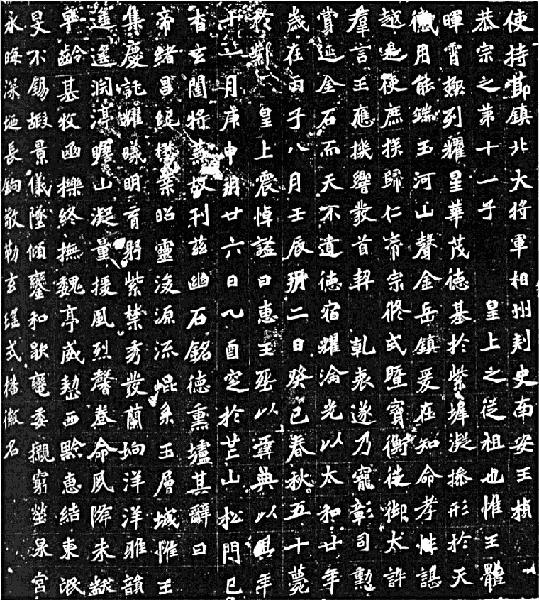 使持節鎮北大將軍相州刺史南安王楨
恭宗之第十一子 皇上之從祖也惟王體
暉霄極列耀星華茂德基於紫墀凝操形於天
儀用能端玉河山聲金岳鎮爰在知命孝性諶
越是使庶族歸仁帝宗攸式暨寶衡徙御大訊
羣言王應機響發首契 乾衷遂乃寵彰司勳
賞延金石而天不遺德宿耀淪光以太和廿年
歲在丙子八月壬辰朔二日癸巳春秋五十薨
於鄴 皇上震悼諡曰惠王葬以彝典以其年
十一月庚申朔廿六日乙酉窆於芒山松門已
杳玄闥將蕪故刊茲幽石銘德熏壚其辭曰
帝緒昌紀懋業昭靈浚源流崐系玉層城惟王
集慶託耀曦明育躬紫禁秀發蘭坰洋洋雅韻
遙遙淵渟瞻山凝量援風烈馨卷命夙降未黻
早齡基牧幽櫟終撫魏亭威整西黔惠結東氓
旻不錫嘏景儀墜傾鑾和歇轡委櫬窮塋泉宮
永晦深埏長鉤敬勒玄瑤式播徽名